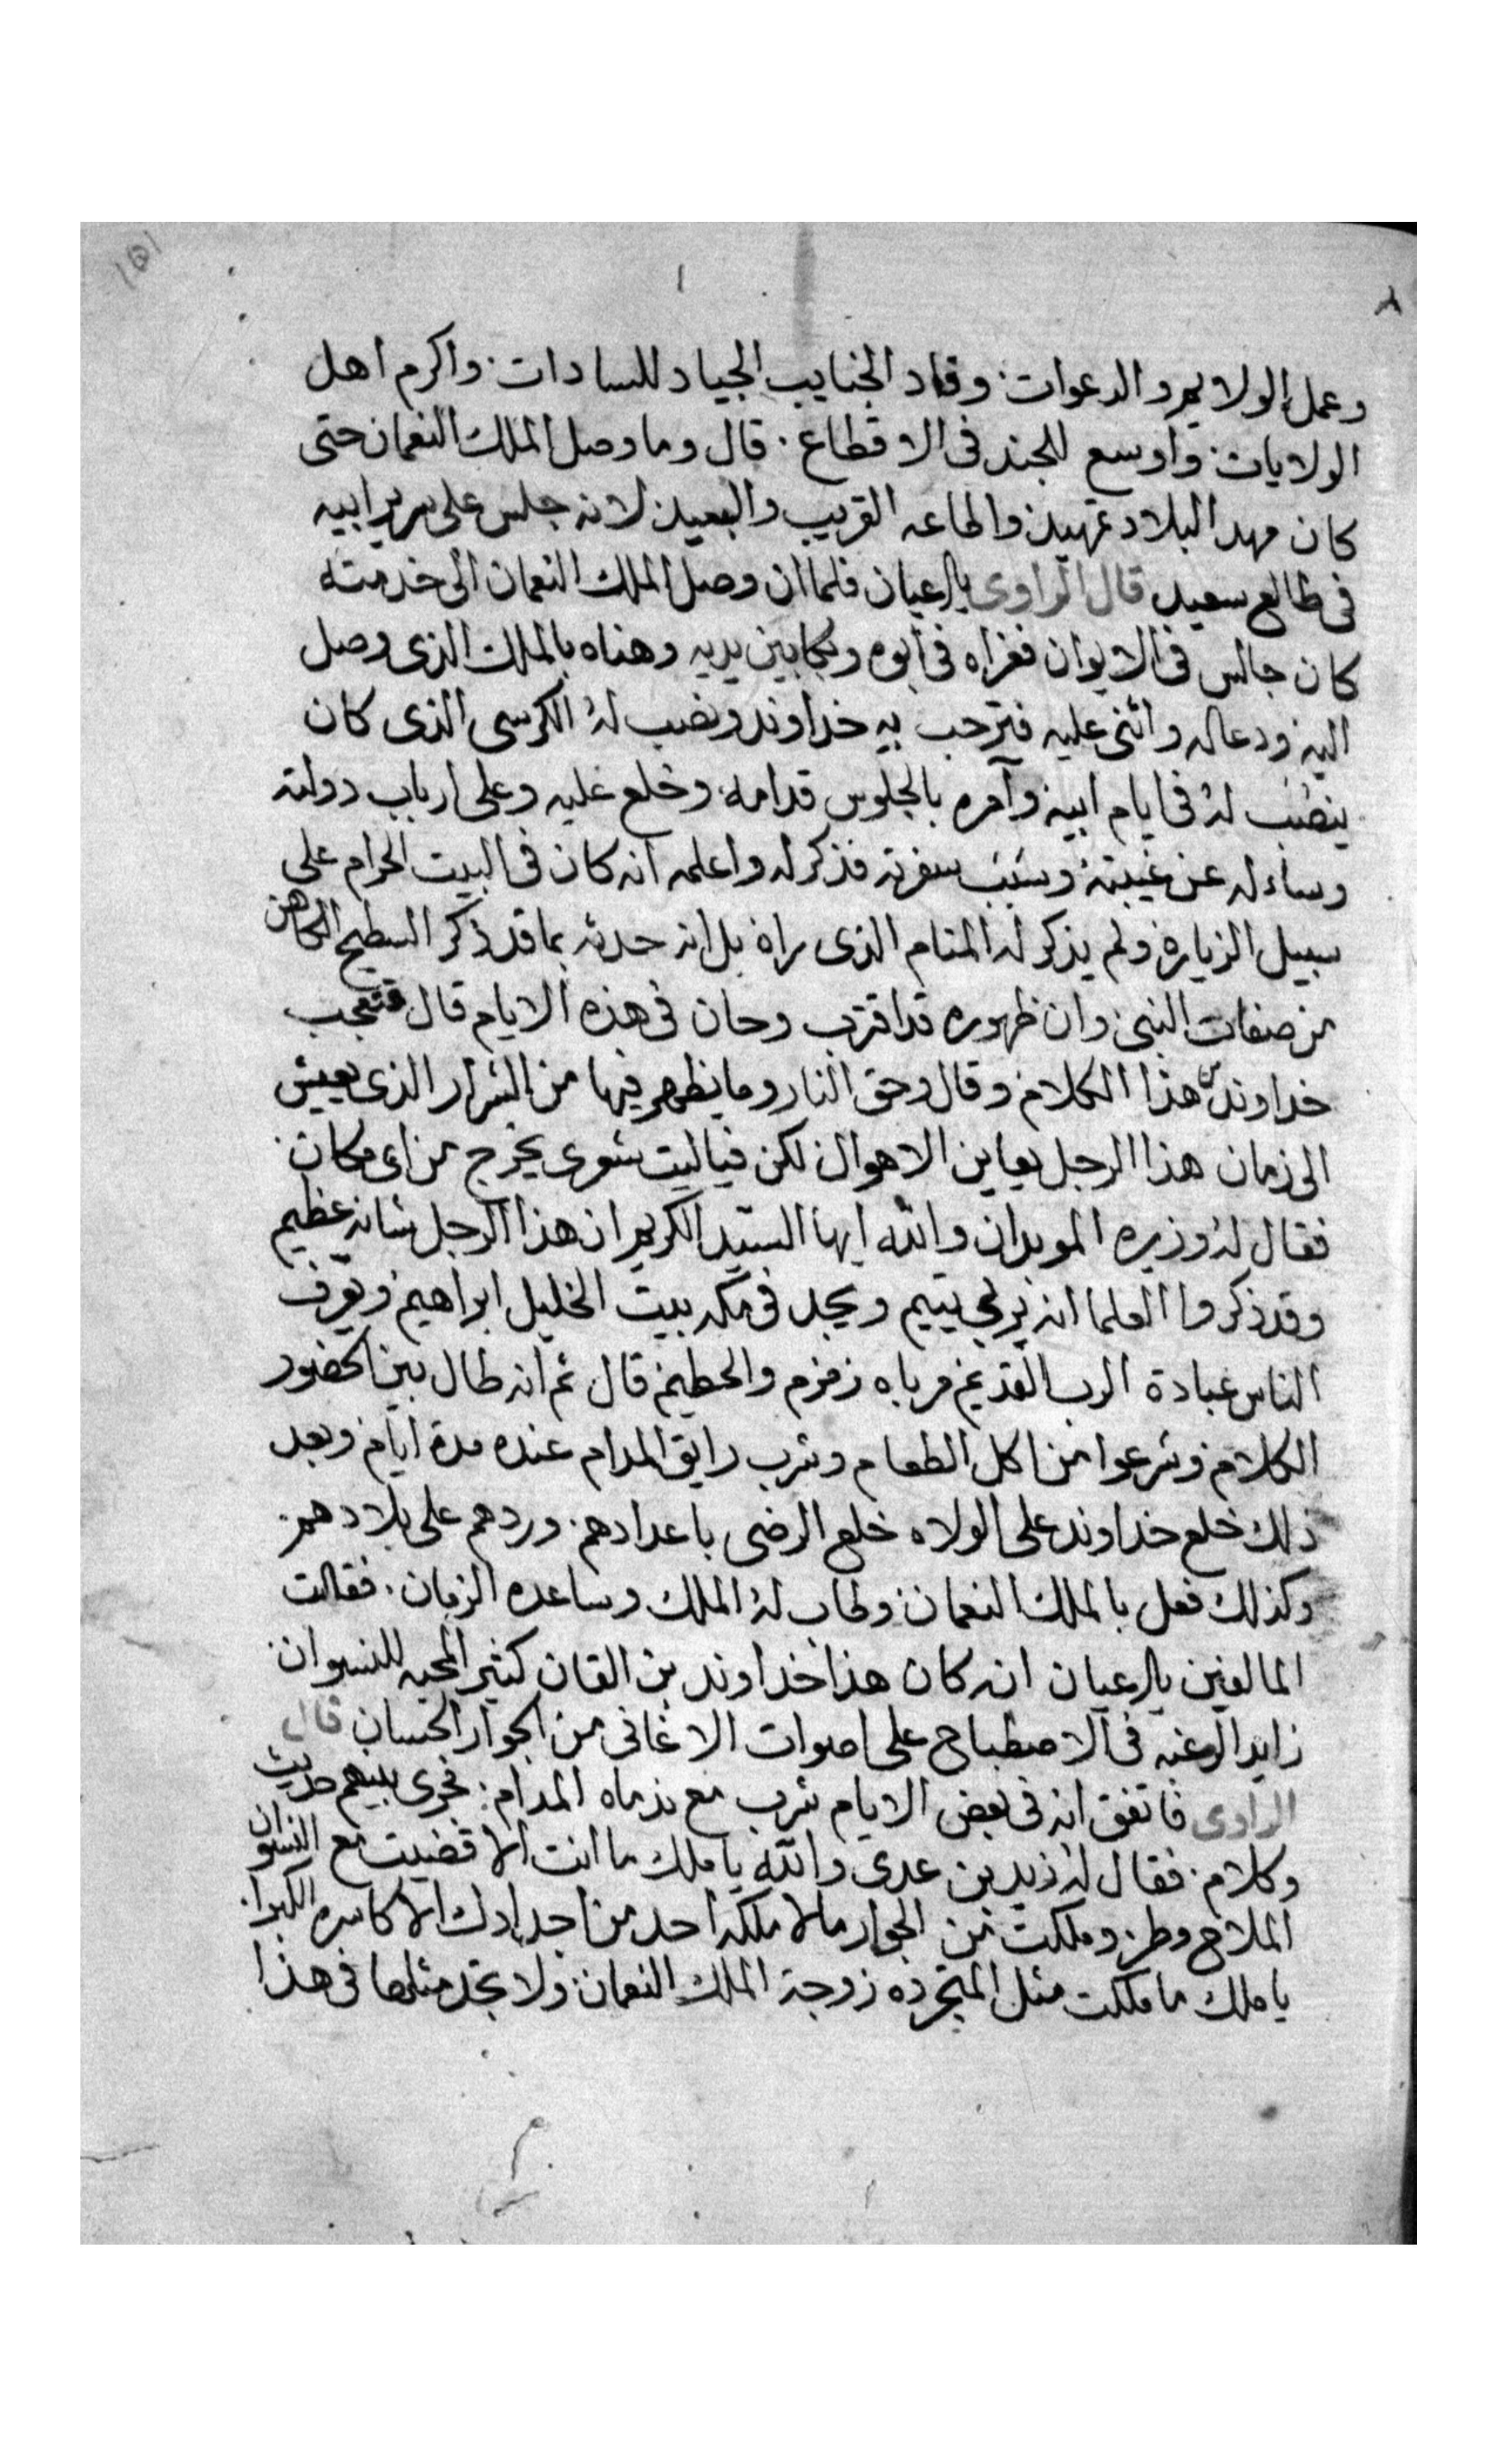 وعمل الولايم والدعوات وقاد الجنايب الجياد للسادات واكرم اهل
الولايات واوسع للجند فى الاقطاع قال وما وصل الملك النعمان حتى
كان مهد البلاد تمهيد واطاعه القريب والبعيد لانه جلس على سرير ابيه
فى طالع سعيد قال الراوى فلما ان وصل الملك النعمان الى خدمته
كان جالس فى الايوان فعزاه فى ابوه وبكا بين يديه وهناه بالملك الذى وصل
اليه ودعاله واثنى عليه فترحب به خداوند ونصب له الكرسى الذى كان
ينصب له فى ايام ابيه وآمره بالجلوس قدامه وخلع عليه وعلى ارباب دولته
وساءله عن غيبته وسبب سفرته فذكر له واعلمه انه كان فى البيت الحرام على
سبيل الزيارة ولم يذكر له المنام الذى راه بل انه حدثه بما قد ذكر السطيح الكاهن
من صفات النبى وان ظهوره قد اقترب وحان فى هذه الايام قال فتعجب
خداوند من هذا الكلام وقال وحق النار وما يظهر فيها من الشرار الذى يعيش
الى زمان هذا الرجل يعاين الاهوال لكن فياليت شعرى يخرج من اى مكان
فقال له وزيره الموبدان والله ايها السيد الكريم ان هذا الرجل شانه عظيم
وقد ذكروا العلما انه يربى يتيم ويجل فى مكه بيت الخليل ابراهيم ويعرف
الناس عبادة الرب القديم زمزم والحطيم قال ثم انه طال بين الحضور
الكلام وشرعوا من اكل الطعام وشرب رايق المدام عنده مدة ايام وبعد
ذلك خلع خداوند على الولاه خلع الرضى باعدادهم وردهم على بلادهم
وكذلك فعل بالملك النعمان وطاب له الملك وساعده الزمان فقالت
انه كان هذا خداوند بن القان كثير المحبه للنسوان
زايد الرغبه فى الاصطباح على اصوات الاغانى من الجوار الحسان قال
الراوى فاتفق انه فى بعض الايام شرب مع ندماه المدام فجرى بينهم حديث
وكلام فقال له زيد بن عدى والله يا ملك ما انت الا قضيت مع النسوان
الملاح وطر وملكت من الجوار مالا ملكه احد من اجدادك الاكاسره الكبرا
يا ملك ما ملكت مثل المتجرده زوجة الملك النعمان ولا تجد مثلها فى هذا